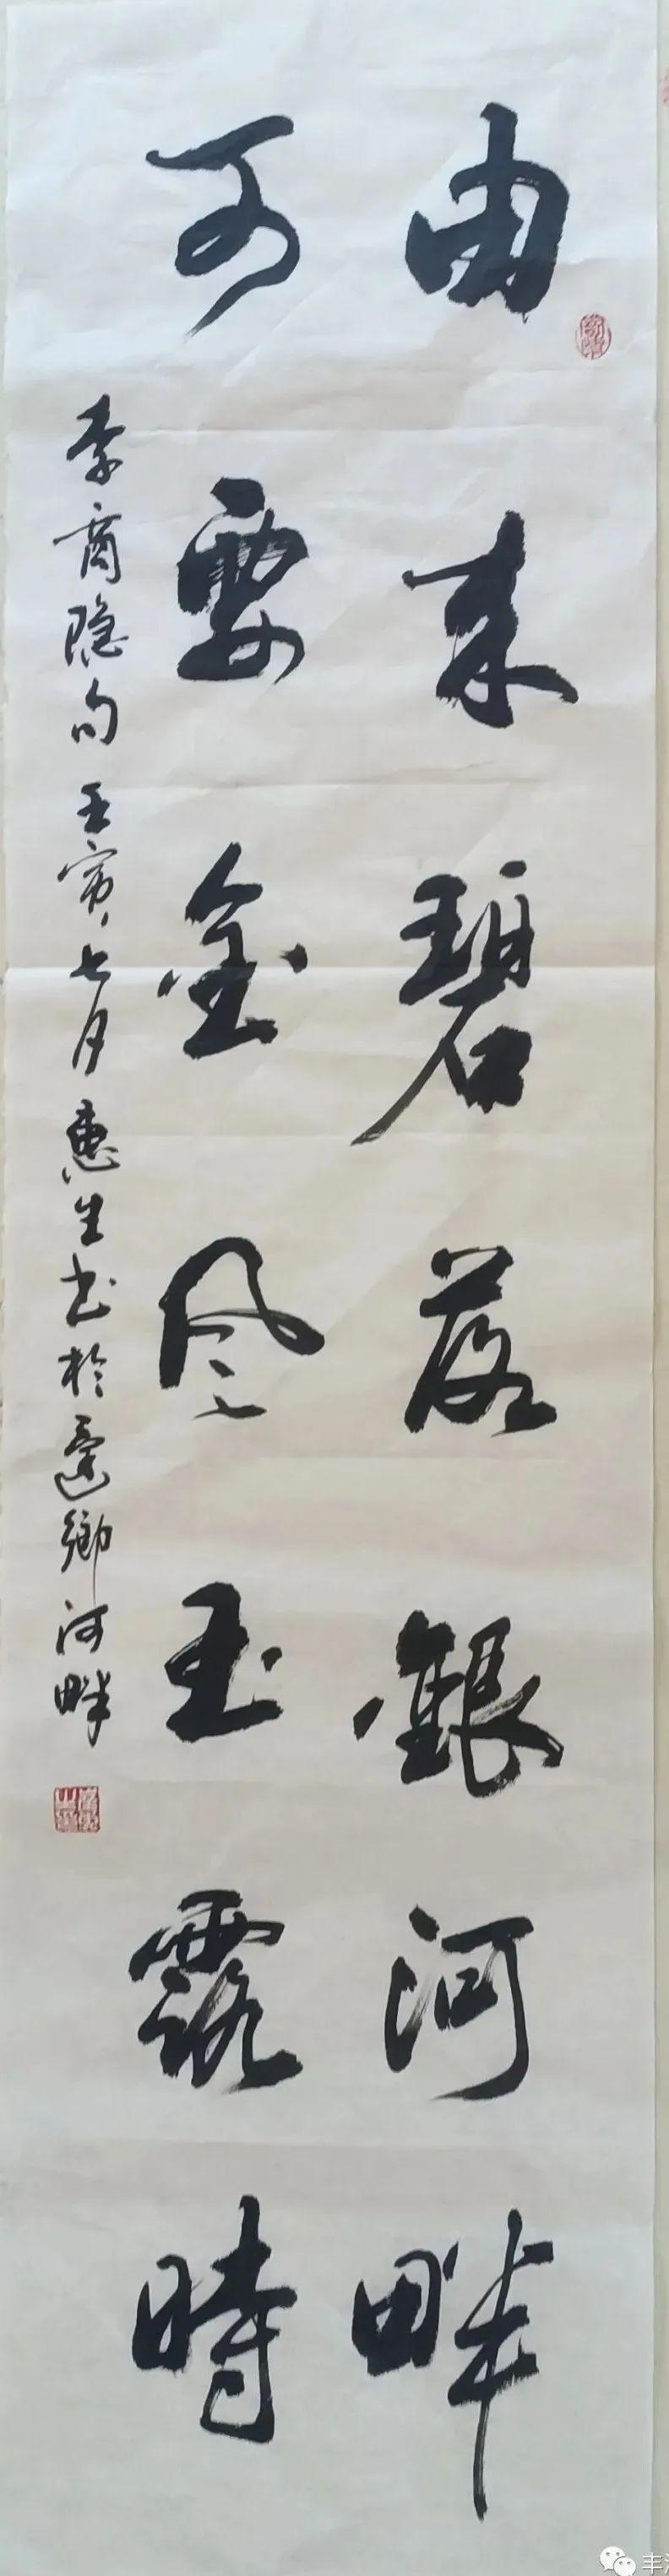 由来碧落銀河畔
可要金风玉露時
李商隐句 壬寅七月惠生书於蓬乡河畔
丰